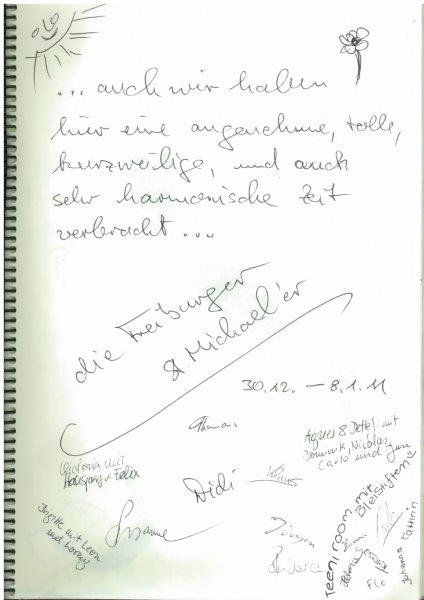 ... auch wir haben
hier eine angenehme, tolle,
kurzweilige, und auch
sehr harmonische Zeit
verbracht ...
die Freiburger
& Michael'er
30.12. – 8.1.11
Agnes & Detlef mit
Dominik, Nicolas,
Carlo und Jan
mit
Felix
Didi
Brigitte mit Leon
und Lorenz
Susanne
Jürgen
Barbara
Teeniroom mit
Bleistiften
Flo
Johanna
Kathrin